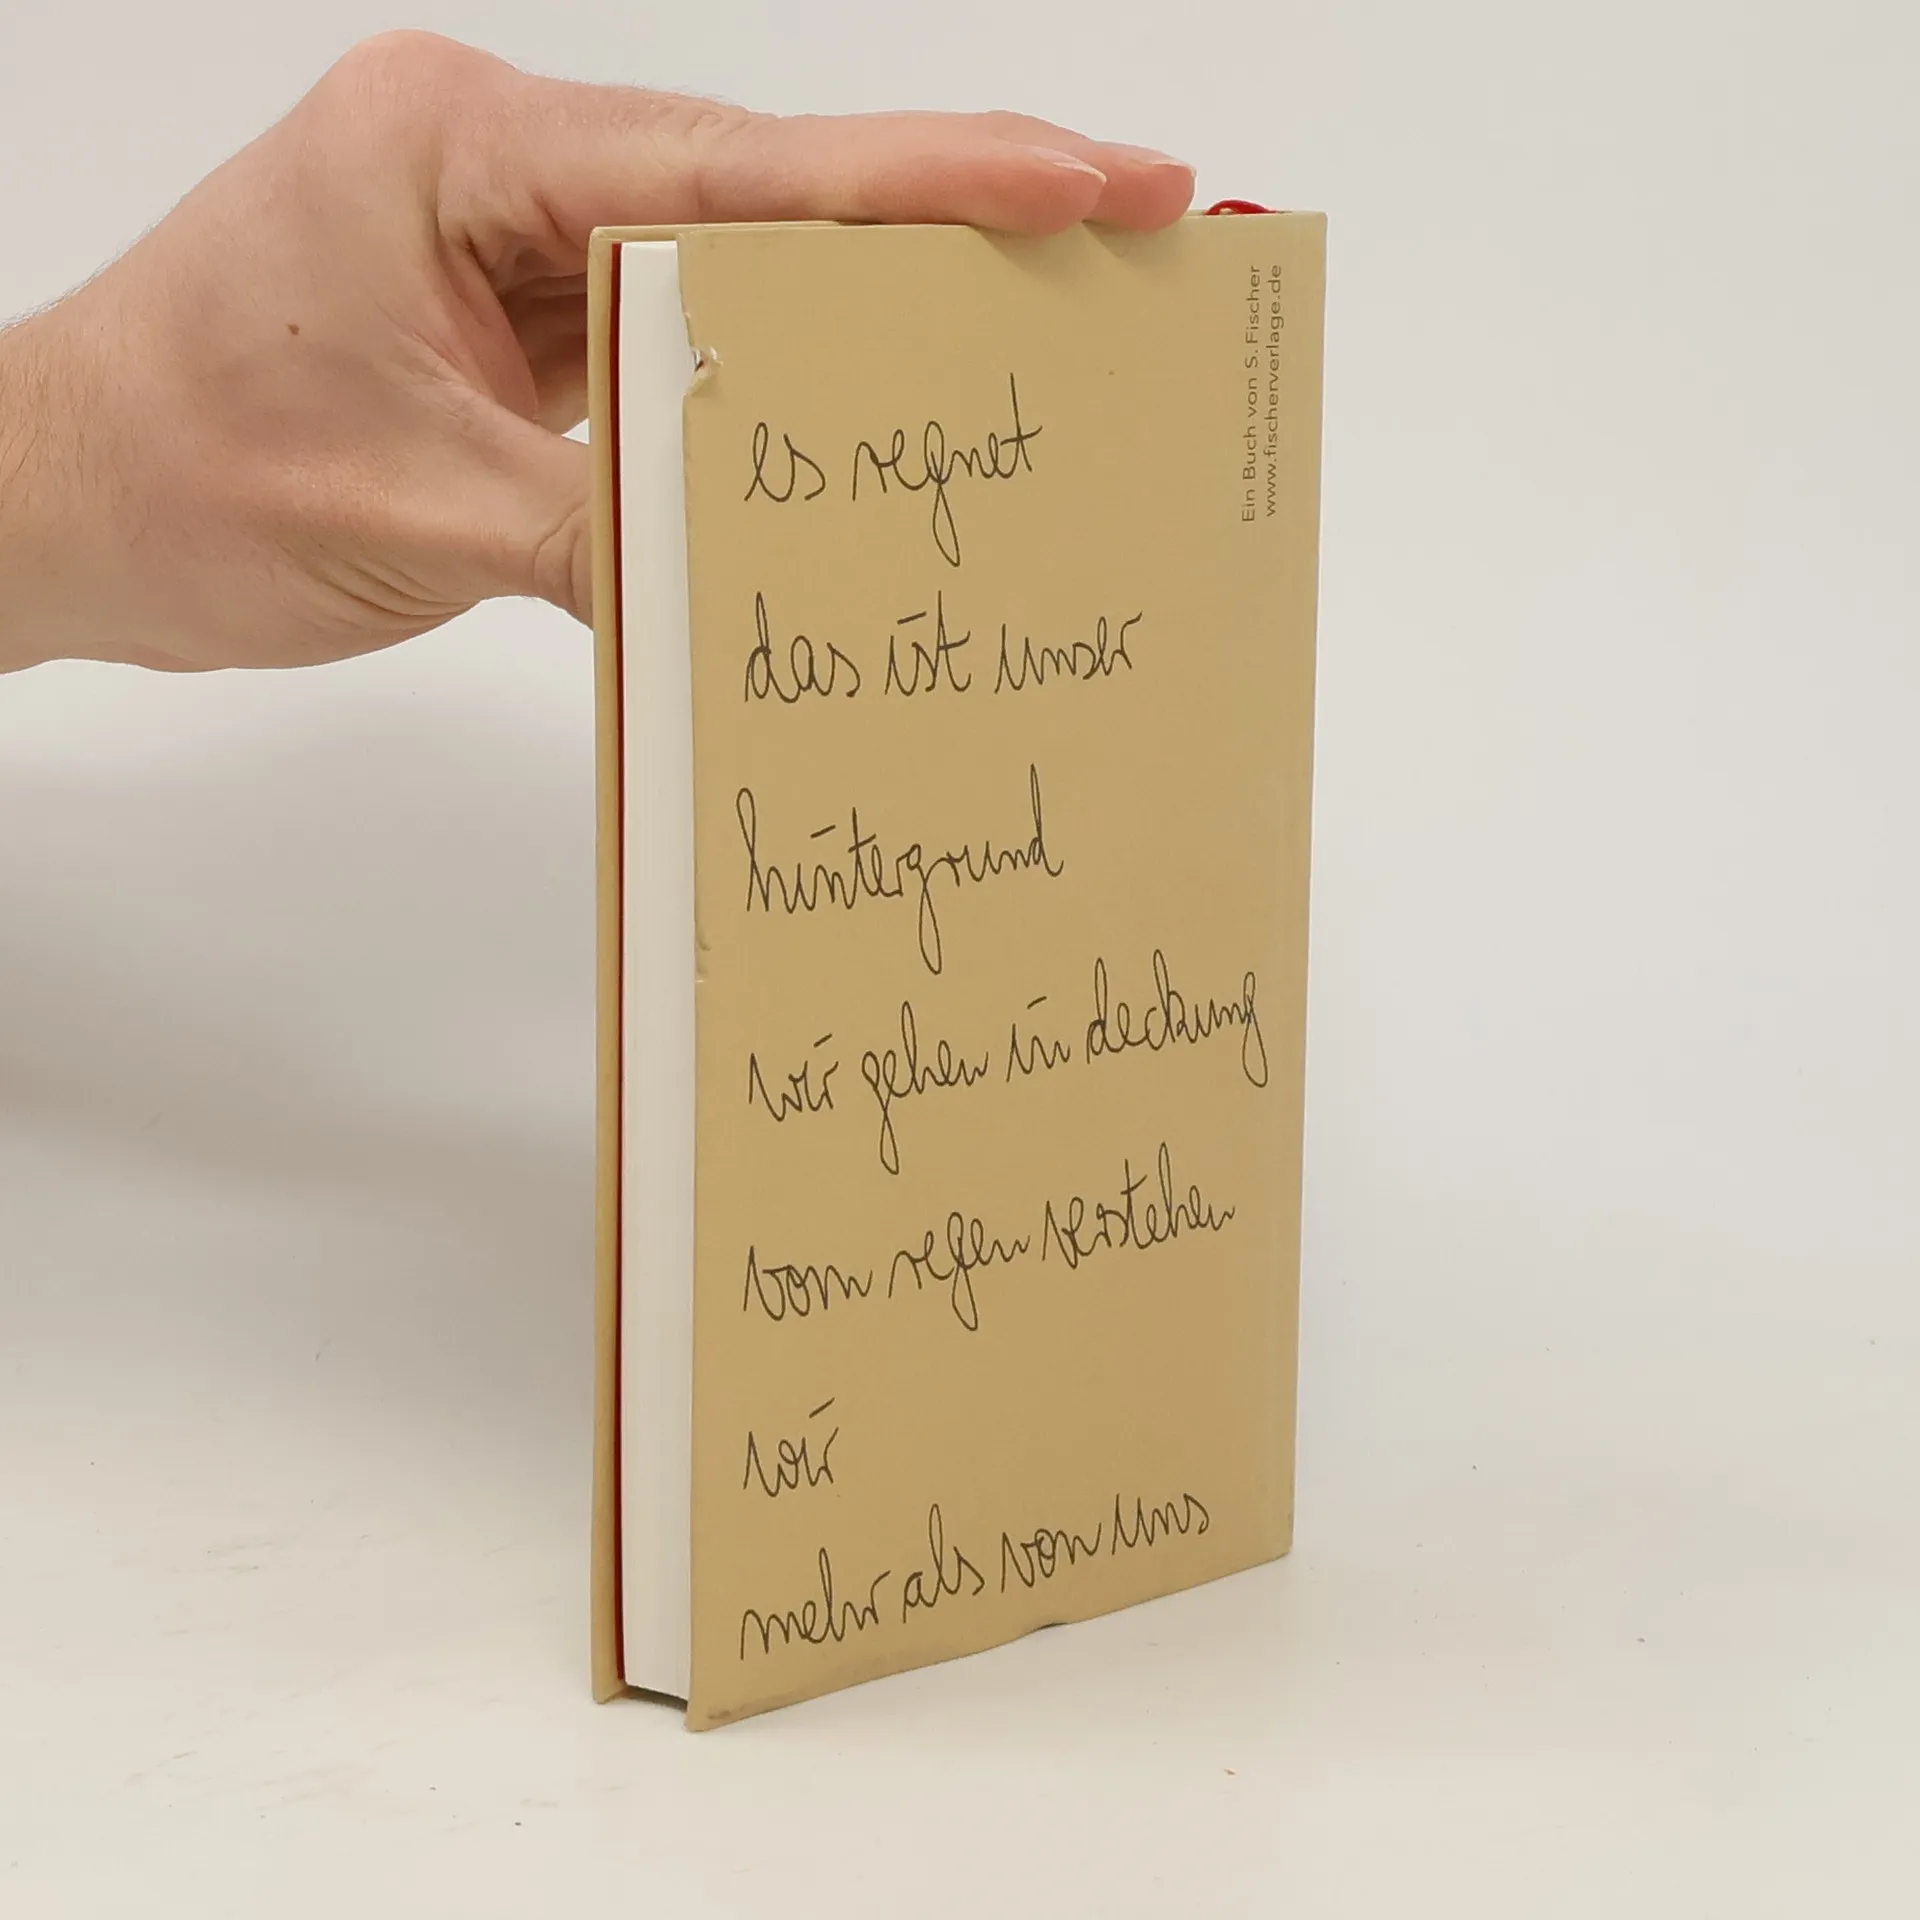 es regnet
das ist unser
hintergrund
wir gehen in deckung
vom regen verstehen
wir
mehr als von uns
Ein Buch von S. Fischer
www.fischerverlage.de